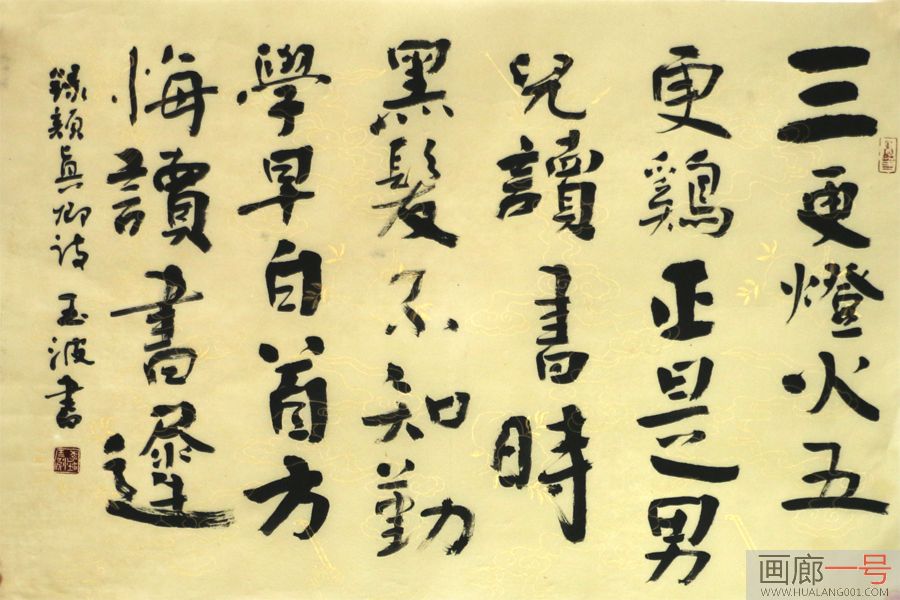 三更燈火五
更鷄正是男
兒讀書時
黑髮不知勤
學早白首方
悔讀書遲
錄顏真卿詩 玉波書
画廊一号
WWW.HUALANG001.COM